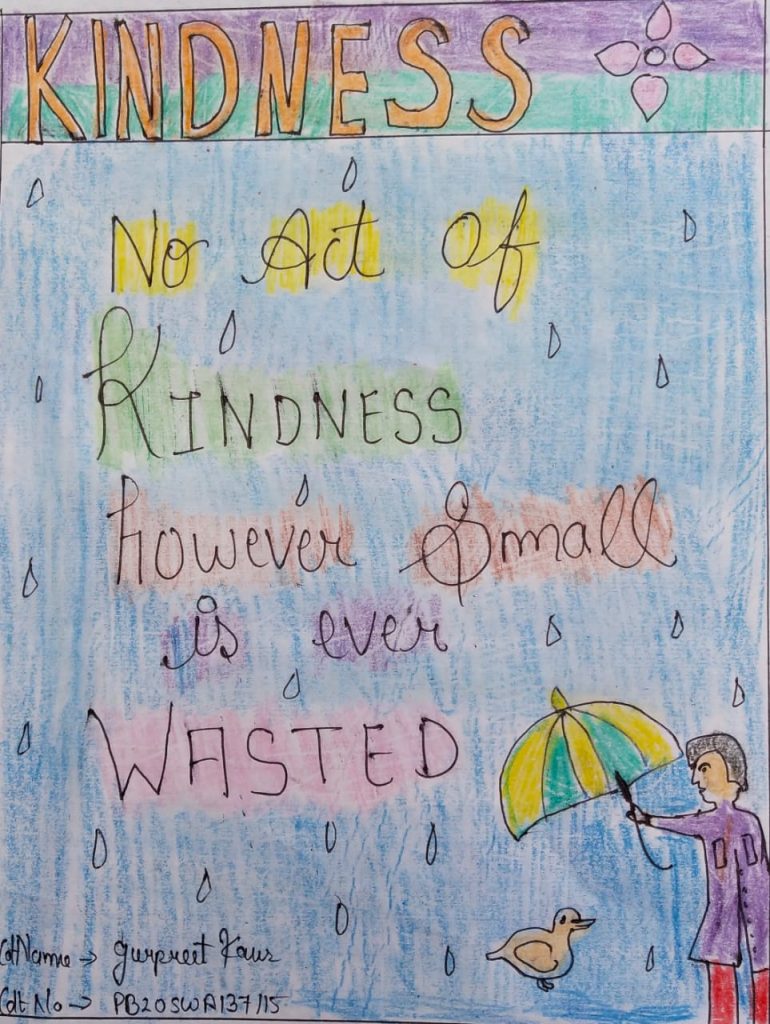 KINDNESS
No Act Of
KINDNESS
however Small
is ever
WASTED
CdtName → Gurpreet Kaur
Cdt No → PB20SWA137115